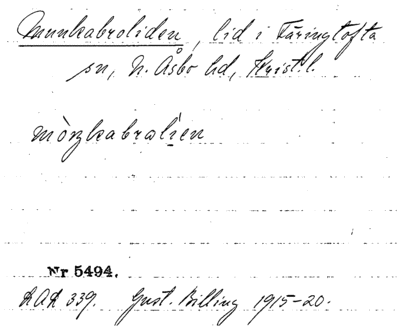 Munkabroliden, lid i Färingtofta
sn, N. Åsbo hd, Krist. l.
Nr 5494.
339. Gust. Billing 1915-20.